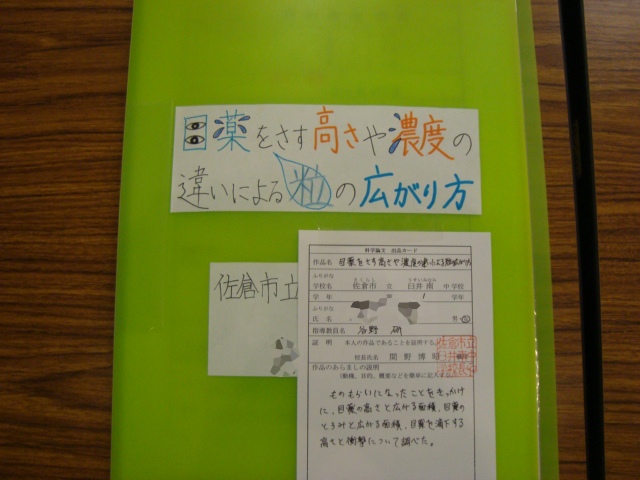 目薬をさす高さや濃度の
違いによる粒の広がり方
佐倉市立
科学論文 出品カード
作品名 目薬をさす高さや濃度の違いによる粒の広がり方
ふりがな さくらし うすいみなみ
学校名 佐倉市 立 臼井南 中学校
学年 1 学年
ふりがな
氏名 男
指導教員名 谷野 研
証明 本人の作品であることを証明する。
校長氏名 間野 博昭
作品のあらましの説明
(動機、目的、概要などを簡単に記入
ものもらいになったことをきっかけ
に、目薬の高さと広がる面積、目薬の
とろみと広がる面積、目薬を滴下する
高さと衝撃について調べた。